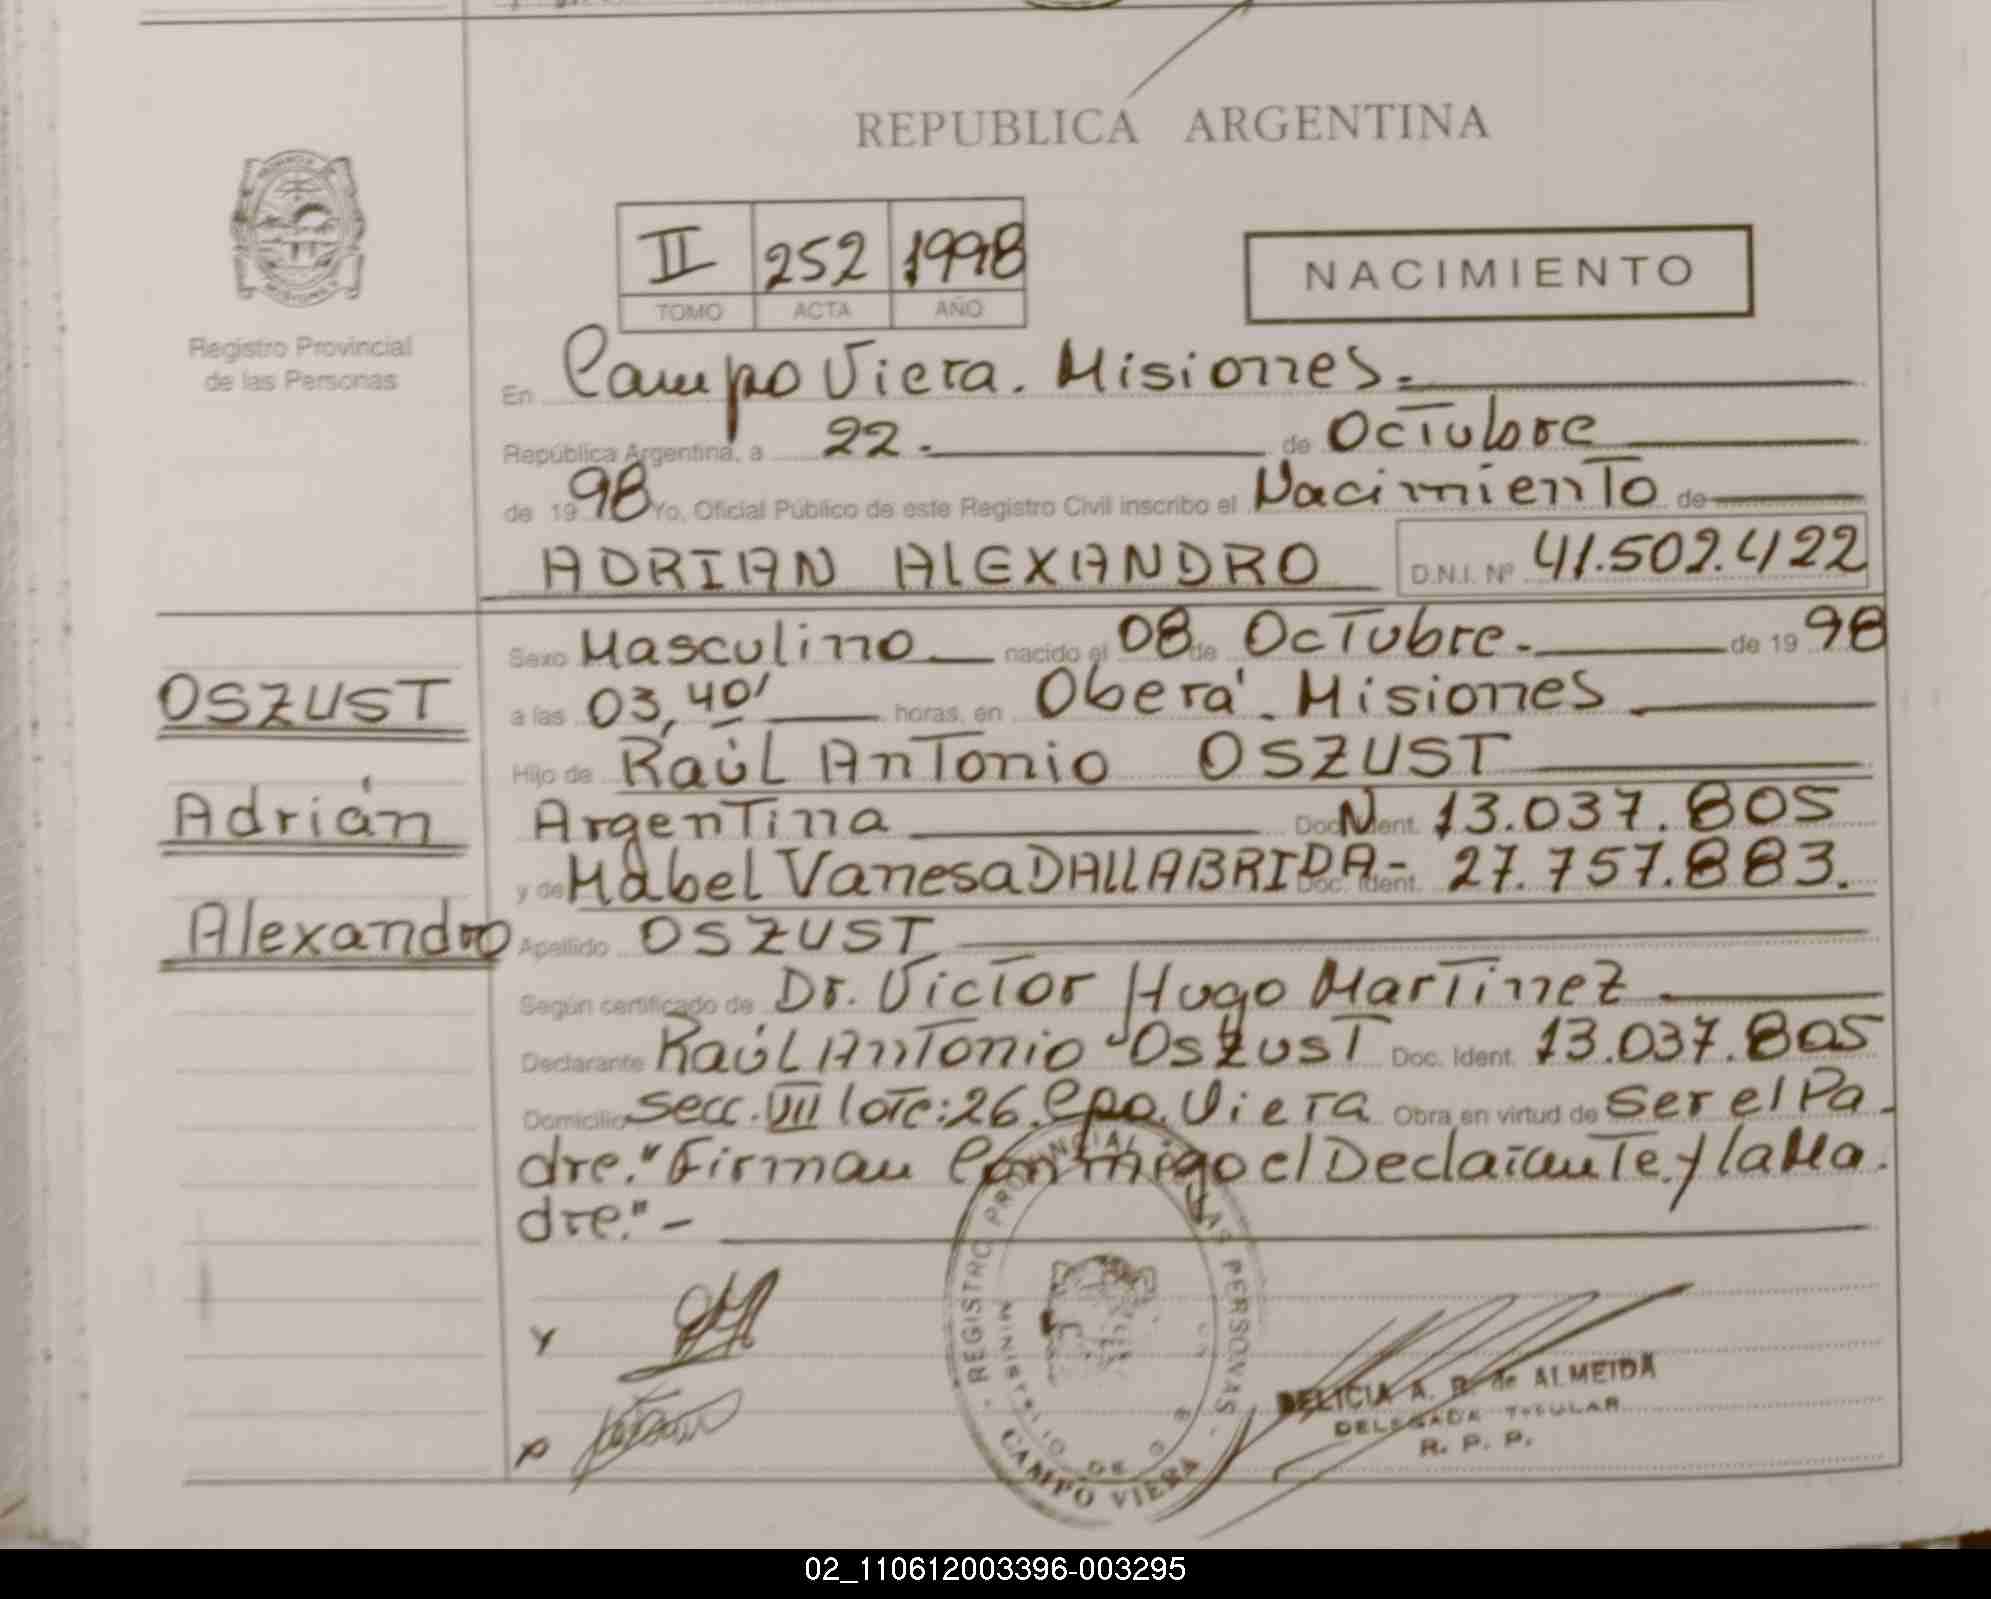 REPUBLICA ARGENTINA
II 252 1998
TOMO ACTA AÑO
NACIMIENTO
MISIONES
Registro Provincial
de las Personas
En Campo Viera. Misiones.=
República Argentina, a 22.- de Octubre
de 1998 Yo, Oficial Público de este Registro Civil inscribo el Nacimiento de
ADRIAN ALEXANDRO D.N.I. Nº 41.502.422
OSZUST
Adrián
Alexandro
Sexo Masculino nacido el 08 de Octubre.- de 1998
a las 03,40' horas, en Oberá. Misiones
Hijo de Raúl Antonio OSZUST
Argentina Doc. Ident. N 13.037.805
y de Mabel Vanesa DALLABRIDA- Doc. Ident. 27.757.883.
Apellido OSZUST
Según certificado de Dr. Victor Hugo Martinez
Declarante Raúl Antonio Oszust Doc. Ident. 13.037.805
Domicilio secc. VII lote: 26. Cpo. Viera Obra en virtud de ser el Pa-
dre." Firman Conmigo el Declarante y la Ma.
dre."-
REGISTRO PROVINCIAL LAS PERSONAS
MINISTERIO DE
CAMPO VIERA
DELICIA A. R. de ALMEIDA
DELEGADA TITULAR
R. P. P.
02_110612003396-003295